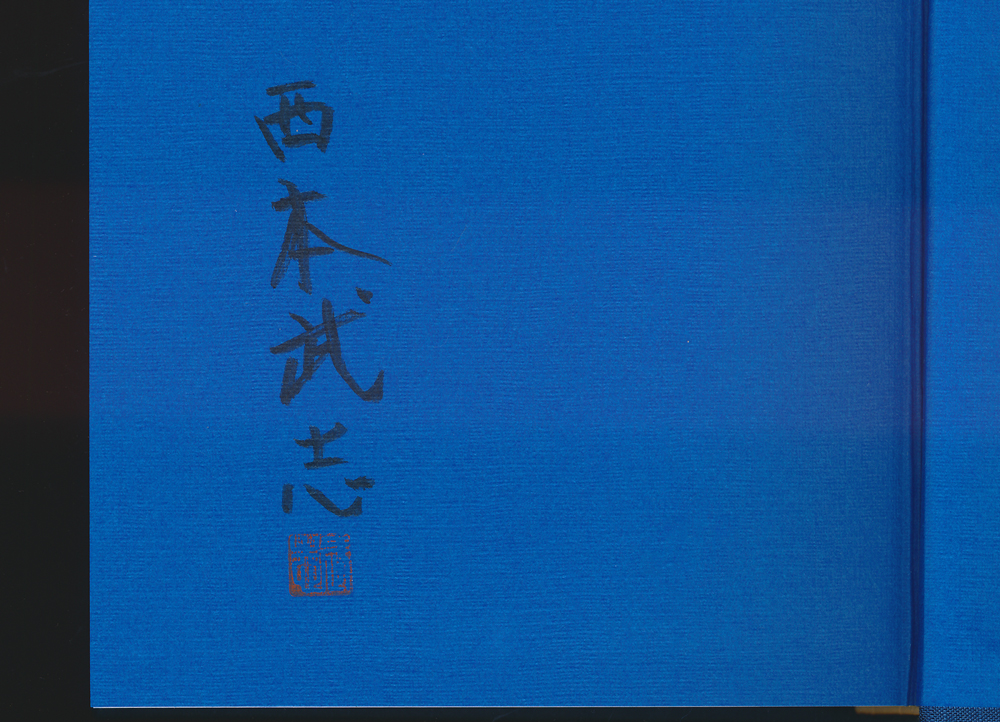 西本武志